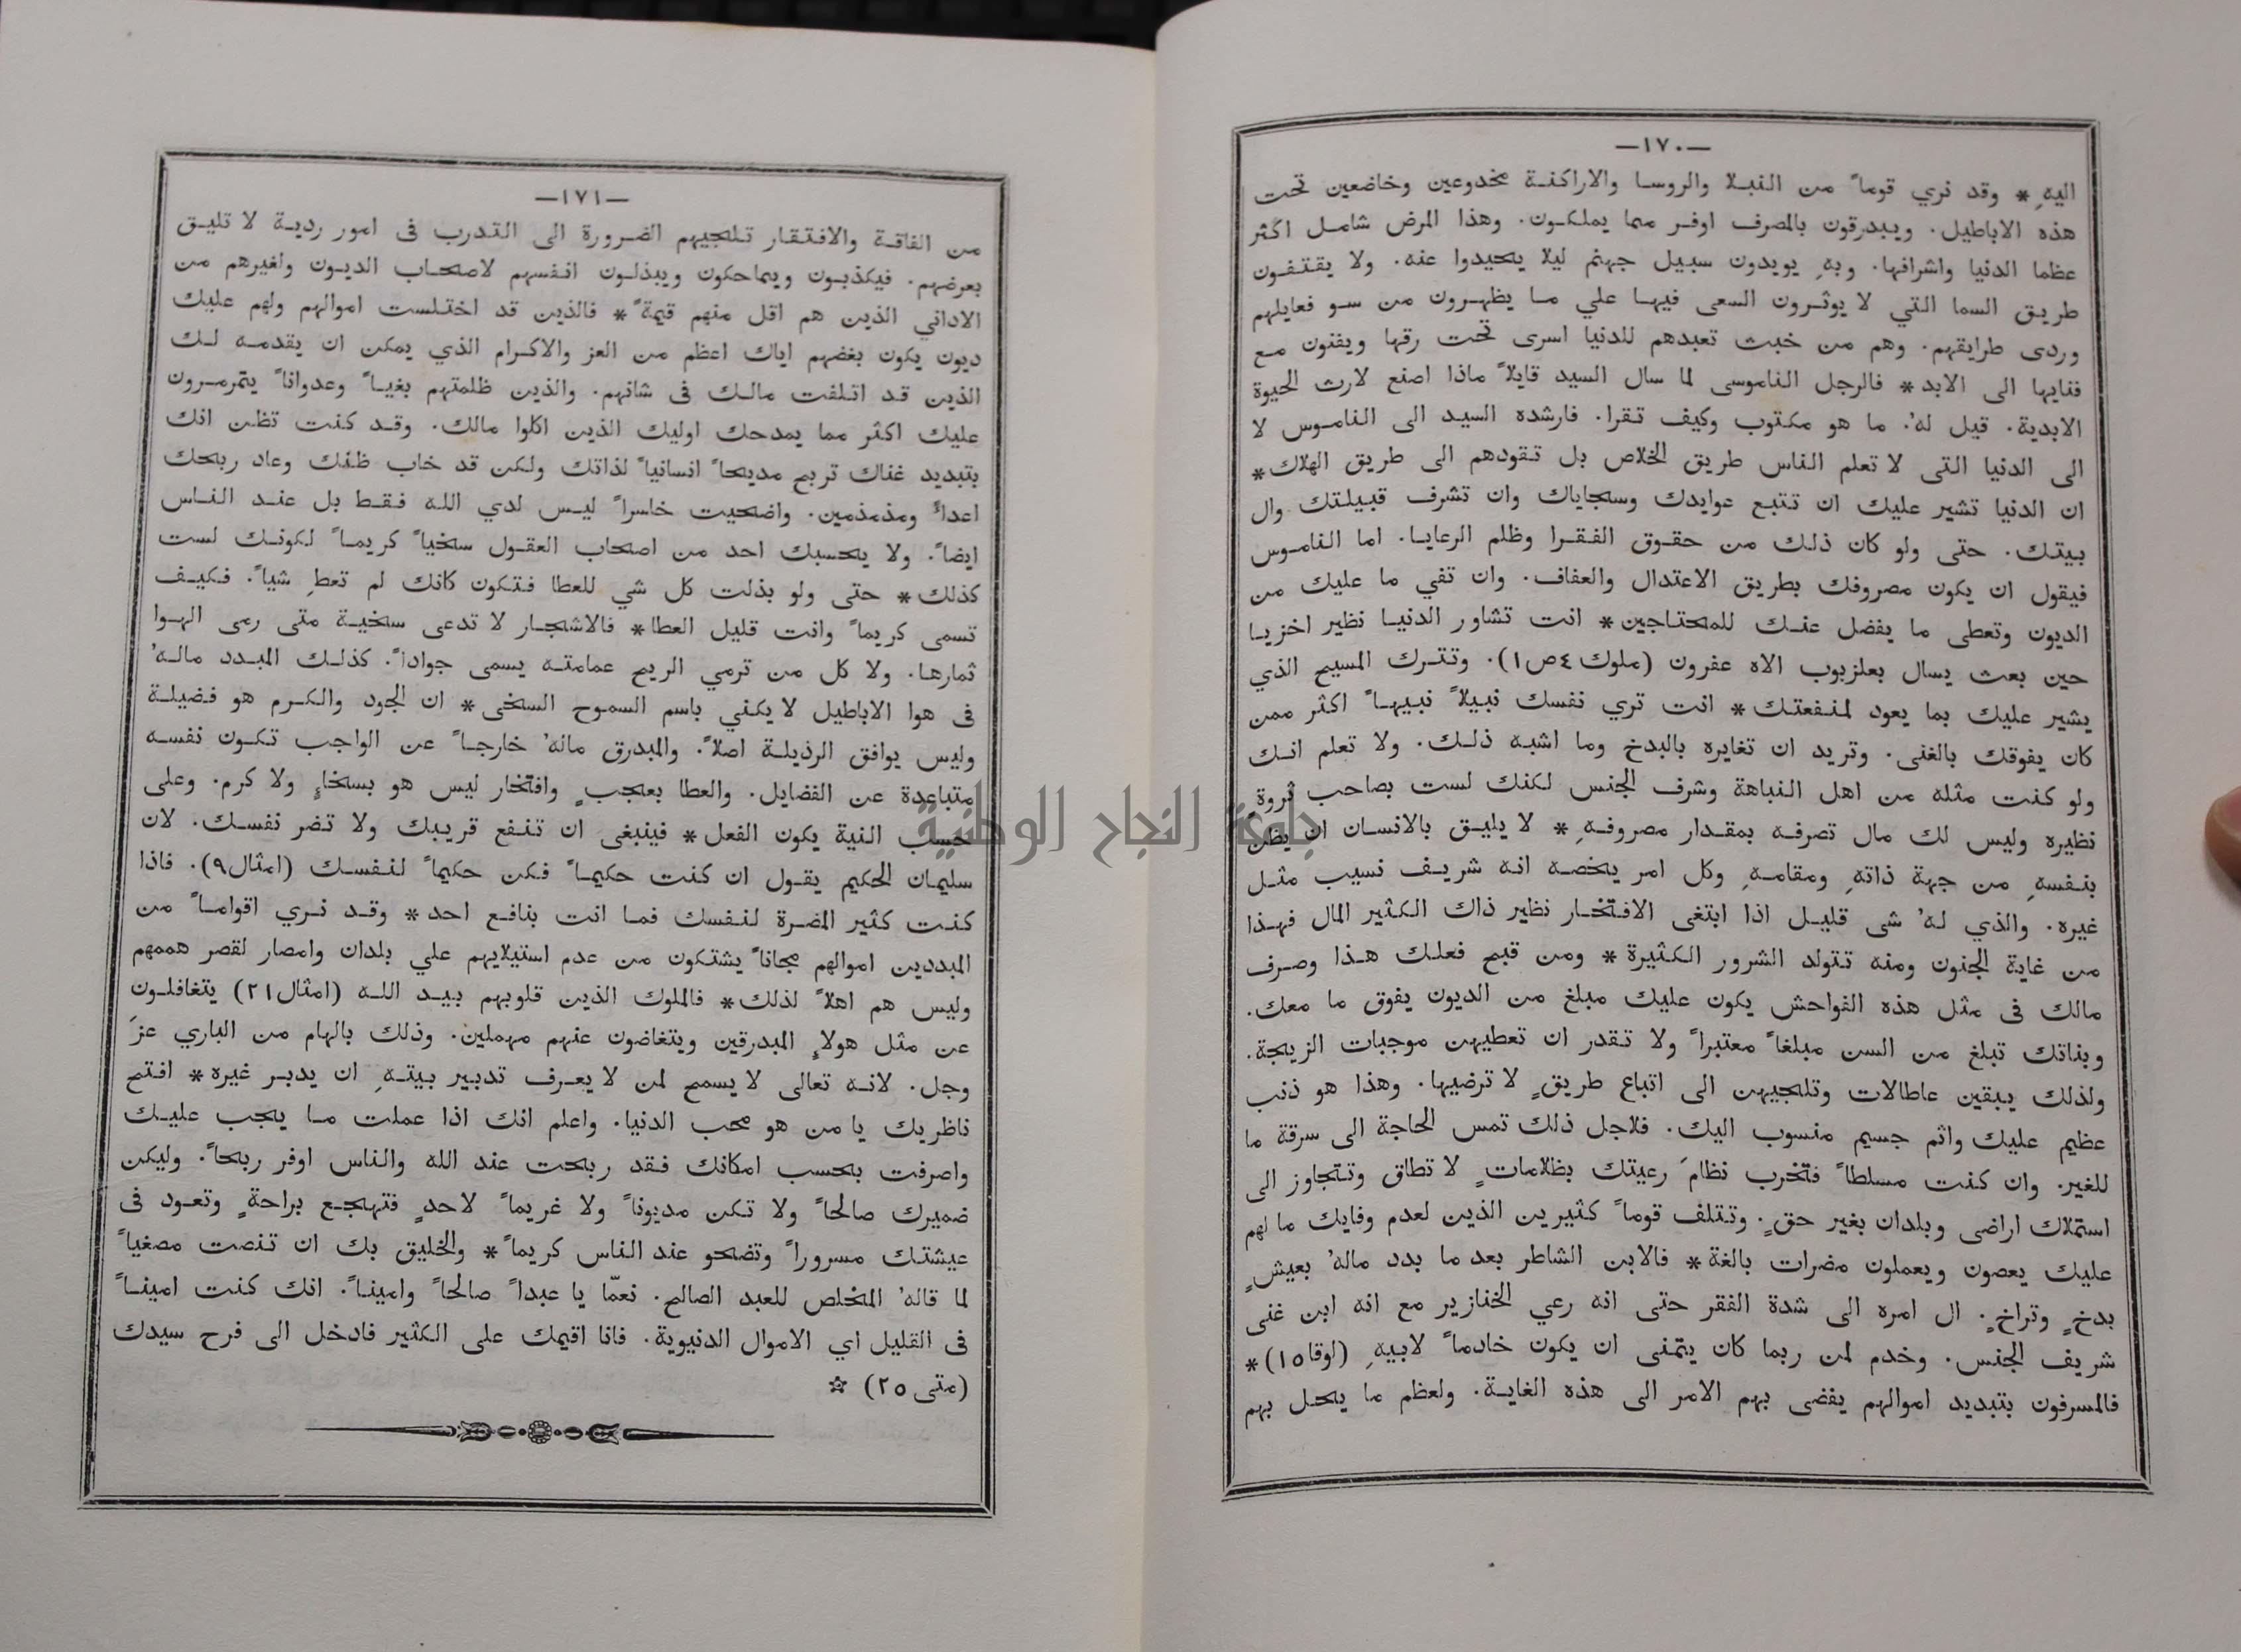 —١٧٠—
اليهِ * وقد نري قوماً من النبلا والروسا والاراكنة مخدوعين وخاضعين تحت
هذه الاباطيل. ويبدرقون بالمصرف اوفر مما يملكون. وهذا المرض شامل اكثر
عظما الدنيا واشرافها. وبهِ يويدون سبيل جهنم ليلا يحيدوا عنه. ولا يقتفون
طريق السما التي لا يوثرون السعى فيها علي ما يظهرون من سو فعايلهم
وردى طرايقهم. وهم من خبث تعبدهم للدنيا اسرى تحت رقها ويفنون مع
فنايها الى الابد * فالرجل الناموسى لما سال السيد قايلاً ماذا اصنع لارث الحيوة
الابدية. قيل له'. ما هو مكتوب وكيف تقرا. فارشده السيد الى الناموس لا
الى الدنيا التى لا تعلم الناس طريق الخلاص بل تقودهم الى طريق الهلاك *
ان الدنيا تشير عليك ان تتبع عوايدك وسجاياك وان تشرف قبيلتك وال
بيتك. حتى ولو كان ذلك من حقوق الفقرا وظلم الرعايا. اما الناموس
فيقول ان يكون مصروفك بطريق الاعتدال والعفاف. وان تفي ما عليك من
الديون وتعطى ما يفضل عنك للمحتاجين * انت تشاور الدنيا نظير اخزيا
حين بعث يسال بعلزبوب الاه عفرون (ملوك٤ص١). وتترك المسيح الذي
يشير عليك بما يعود لمنفعتك * انت تري نفسك نبيلاً نبيهاً اكثر ممن
كان يفوقك بالغنى. وتريد ان تغايره بالبدخ وما اشبه ذلك. ولا تعلم انك
ولو كنت مثله من اهل النباهة وشرف الجنس لكنك لست بصاحب ثروة
نظيره وليس لك مال تصرفه بمقدار مصروفهِ * لا يليق بالانسان ان يظن
بنفسهِ من جهة ذاتهِ ومقامهِ وكل امر يخصه انه شريف نسيب مثل
غيره. والذي له' شى قليل اذا ابتغى الافتخار نظير ذاك الكثير المال فهذا
من غاية الجنون ومنه تتولد الشرور الكثيرة * ومن قبح فعلك هذا وصرف
مالك فى مثل هذه الفواحش يكون عليك مبلغ من الديون يفوق ما معك.
وبناتك تبلغ من السن مبلغاً معتبراً ولا تقدر ان تعطيهن موجبات الزيجة.
ولذلك يبقين عاطالات وتلجيهن الى اتباع طريقٍ لا ترضيها. وهذا هو ذنب
عظيم عليك واثم جسيم منسوب اليك. فلاجل ذلك تمس الحاجة الى سرقة ما
للغير. وان كنت مسلطاً فتخرب نظامَ رعيتك بظلاماتٍ لا تطاق وتتجاوز الى
استملاك اراضى وبلدان بغير حقٍ. وتتلف قوماً كثيرين الذين لعدم وفايك ما لهم
عليك يعصون ويعملون مضرات بالغة * فالابن الشاطر بعد ما بدد ماله' بعيشٍ
بدخٍ وتراخٍ. ال امره الى شدة الفقر حتى انه رعي الخنازير مع انه ابن غنى
شريف الجنس. وخدم لمن ربما كان يتمنى ان يكون خادماً لابيهِ (لوقا١٥) *
فالمسرفون بتبديد اموالهم يفضى بهم الامر الى هذه الغاية. ولعظم ما يحل بهم
—١٧١—
من الفاقة والافتقار تلجيهم الضرورة الى التدرب فى امور ردية لا تليق
بعرضهم. فيكذبون ويماحكون ويبذلون انفسهم لاصحاب الديون ولغيرهم من
الاداني الذين هم اقل منهم قيمةً * فالذين قد اختلست اموالهم ولهم عليك
ديون يكون بغضهم اياك اعظم من العز والاكرام الذي يمكن ان يقدمه لك
الذين قد اتلفت مالك فى شانهم. والذين ظلمتهم بغياً وعدواناً يتمرمرون
عليك اكثر مما يمدحك اوليك الذين اكلوا مالك. وقد كنت تظن انك
بتبديد غناك تربح مديحاً انسانياً لذاتك ولكن قد خاب ظنك وعاد ربحك
اعداً ومذمذمين. واضحيت خاسراً ليس لدي الله فقط بل عند الناس
ايضاً. ولا يحسبك احد من اصحاب العقول سخياً كريماً لكونك لست
كذلك * حتى ولو بذلت كل شي للعطا فتكون كانك لم تعطِ شياً. فكيف
تسمى كريماً وانت قليل العطا * فالاشجار لا تدعى سخية متى رمى الهوا
ثمارها. ولا كل من ترمي الريح عمامته يسمى جواداً. كذلك المبدد ماله'
فى هوا الاباطيل لا يكني باسم السموح السخى * ان الجود والكرم هو فضيلة
وليس يوافق الرذيلة اصلاً. والمبدرق ماله' خارجاً عن الواجب تكون نفسه
متباعدة عن الفضايل. والعطا بعجبٍ وافتخار ليس هو بسخاءٍ ولا كرم. وعلى
حسب النية يكون الفعل * فينبغى ان تنفع قريبك ولا تضر نفسك. لان
سليمان الحكيم يقول ان كنت حكيماً فكن حكيماً لنفسك (امثال٩). فاذا
كنت كثير المضرة لنفسك فما انت بنافع احد * وقد نري اقواماً من
المبددين اموالهم مجاناً يشتكون من عدم استيلايهم علي بلدان وامصار لقصر هممهم
وليس هم اهلاً لذلك * فالملوك الذين قلوبهم بيد الله (امثال٢١) يتغافلون
عن مثل هولاءِ المبدرقين ويتغاضون عنهم مهملين. وذلك بالهام من الباري عزَ
وجل. لانه تعالى لا يسمح لمن لا يعرف تدبير بيتهِ ان يدبر غيره * افتح
ناظريك يا من هو محب الدنيا. واعلم انك اذا عملت ما يجب عليك
واصرفت بحسب امكانك فقد ربحت عند الله والناس اوفر ربحاً. وليكن
ضميرك صالحاً ولا تكن مديوناً ولا غريماً لاحدٍ فتهجع براحةٍ وتعود فى
عيشتك مسروراً وتضحو عند الناس كريماً * والخليق بك ان تنصت مصغياً
لما قاله' المخلص للعبد الصالح. نعمّا يا عبداً صالحاً واميناً. انك كنت اميناً
فى القليل اي الاموال الدنيوية. فانا اقيمك على الكثير فادخل الى فرح سيدك
(متى٢٥) *
جامعة النجاح الوطنية